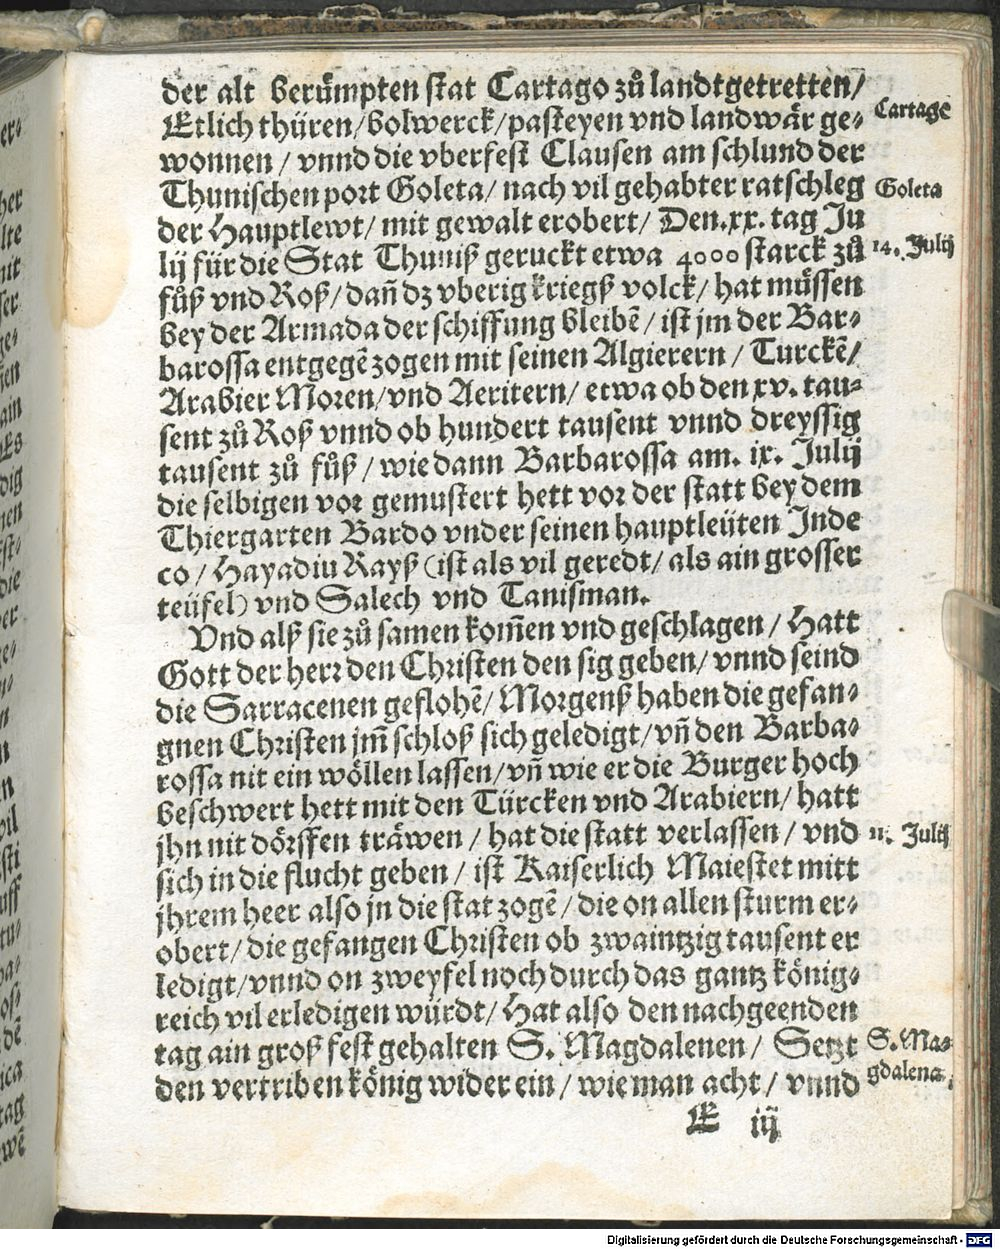 der alt berům̃pten stat Cartago zů landtgetretten/
Etlich thüren/bolwerck/pasteyen vnd landwår ge⸗
wonnen / vnnd die vberfest Clausen am schlund der
Thunischen port Goleta/ nach vil gehabter ratschleg
der Hauptlewt/ mit gewalt erobert/ Den.xx. tag Ju
lij für die Stat Thuniß geruckt etwa 4000 starck zů
fůß vnd Roß/dañ dz vberig kriegß volck/ hat müssen
bey der Armada der schiffung bleibē/ ist jm der Bar⸗
barossa entgegē zogen mit seinen Algierern / Turckē/
Arabier Moren/vnd Aeritern/ etwa ob den xv. tau⸗
sent zů Roß vnnd ob hundert tausent vnnd dreyssig
tausent zů fůß/wie dann Barbarossa am. ix. Julij
die selbigen vor gemustert hett vor der statt bey dem
Thiergarten Bardo vnder seinen hauptleüten Inde
co/ Hayadiu Rayß (ist als vil geredt/ als ain grosser
teüfel) vnd Salech vnd Tanisman.
Vnd alß sie zů samen kom̃en vnd geschlagen / Hatt
Gott der herr den Christen den sig geben/ vnnd seind
die Sarracenen geflohē/ Morgenß haben die gefan⸗
gnen Christen jm̃ schloß sich geledigt/vñ den Barba⸗
rossa nit ein wöllen lassen/vñ wie er die Burger hoch
beschwert hett mit den Türcken vnd Arabiern/ hatt
jhn nit dörffen träwen / hat die statt verlassen / vnd
sich in die flucht geben / ist Kaiserlich Maiestet mitt
jhrem heer also jn die stat zogē/die on allen sturm er⸗
obert/die gefangen Christen ob zwaintzig tausent er
ledigt/vnnd on zweyfel noch durch das gantz könig⸗
reich vil erledigen würdt/ Hat also den nachgeenden
tag ain groß fest gehalten S. Magdalenen/ Setzt
den vertriben könig wider ein / wie man acht / vnnd
E iij
Cartage
Goleta
14. Julij
11. Julij
S. Ma⸗
gdalena.
Digitalisierung gefördert durch die Deutsche Forschungsgemeinschaft - DFG